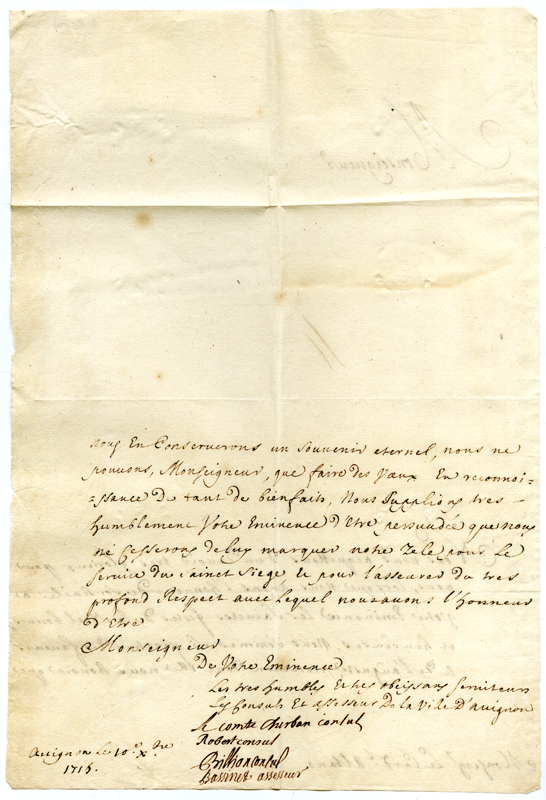 nous En Conserverons un souvenir eternel, nous ne
pouvons, Monseigneur, que faire des Vœux En reconnoi=
=ssance De tant de bienfaits, Nous Supplions tres
humblement Votre Eminence d'Etre persuadée que nous
ne Cesserons de luy marquer notre Zele pour Le
Service du Sainct Siege, Et pour l'asseurer du tres
profond Respect avec Lequel nous avons l'honneur
d'Etre
Monseigneur
De Votre Eminence
Les tres humbles Et tres obeissans Serviteurs
Les Consuls Et assesseur De la Ville D'avignon
le comte consul
Robert consul
consul
assesseur
avignon le 10e Xbre
1715.
Monseigneur